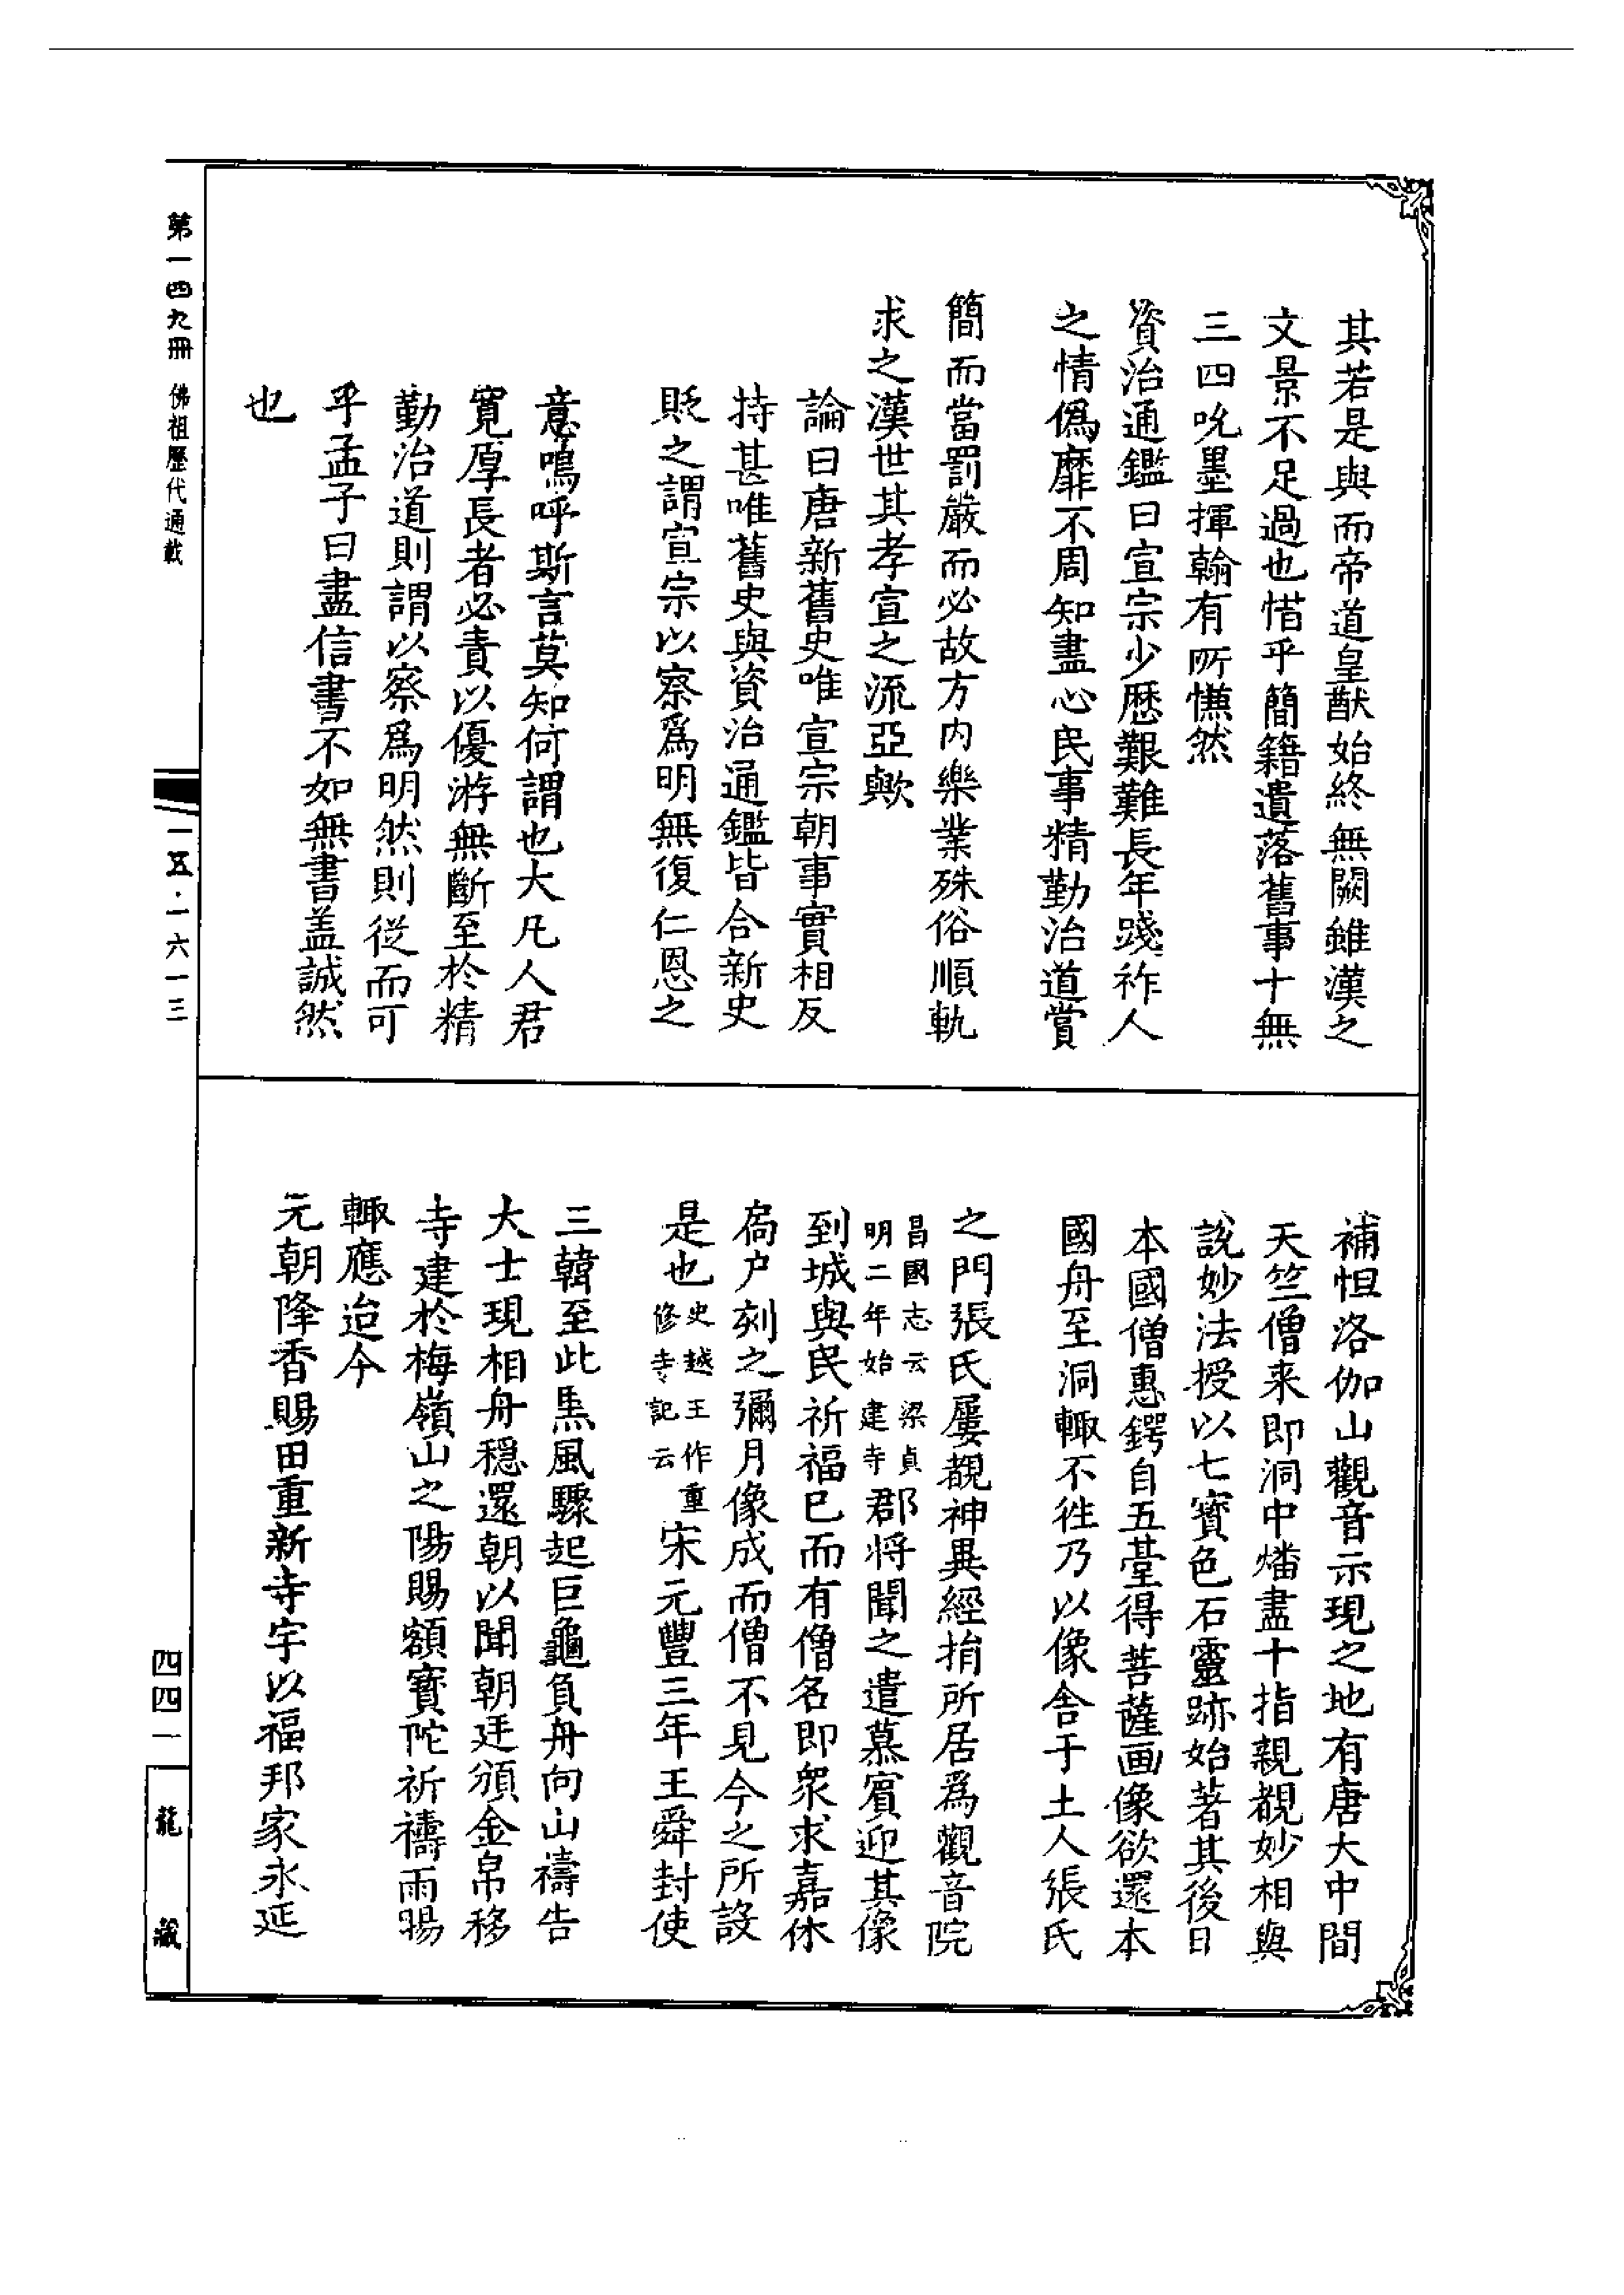 其若是與而帝道皇猷始終無闕雖漢之
文景不足過也惜乎簡籍遺落舊事十無
三四吮墨揮翰有所慊然
資治通鑑曰宣宗少歷艱難長年踐祚人
之情僞靡不周知盡心民事精勤治道賞
簡而當罰嚴而必故方内樂業殊俗順軌
求之漢世其孝宣之流亞歟
論曰唐新舊史唯宣宗朝事實相反
持甚唯舊史與資治通鑑皆合新史
貶之謂宣宗以察爲明無復仁恩之
意嗚呼斯言莫知何謂也大凡人君
寬厚長者必責以優游無斷至於精
勤治道則謂以察爲明然則從而可
乎孟子曰盡信書不如無書盖誠然
也
補怛洛伽山觀音示現之地有唐大中間
天竺僧来即洞中燔盡十指親覩妙相與
說妙法授以七寳色石靈跡始著其後日
本國僧惠鍔自五臺得菩薩画像欲還本
國舟至洞輙不徃乃以像舍于土人張氏
之門張氏屢覩神異經捐所居爲觀音院
昌國志云梁貞
明二年始建寺
郡将聞之遣慕賓迎其像
到城與民祈福已而有僧名即衆求嘉休
扄户刻之彌月像成而僧不見今之所設
是也
史越王作重
修寺記云
宋元豐三年王舜封使
三韓至此黒風驟起巨龜負舟向山禱告
大士現相舟穩還朝以聞朝廷頒金帛移
寺建於梅嶺山之陽賜額寳陀祈禱雨暘
輙應迨今
元朝降香賜田重新寺宇以福邦家永延
第一四九冊 佛祖歷代通載
一五·一六一三
四四一
龍藏